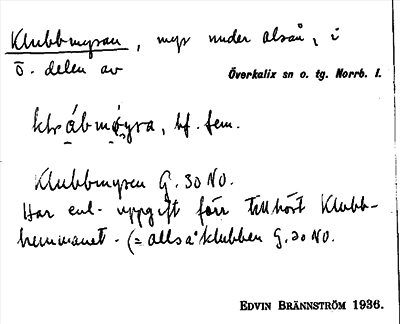 Klubbmyran, myr under alsån, i
ö. delen av
Överkalix sn o. tg. Norrb. l.
bf. fem.
Klubbmyren G. 30 NO.
Har enl. uppgift förr tillhört Klubb-
hemmanet. (= alltså klubben G. 20 NO.
EDVIN BRÄNNSTRÖM 1936.